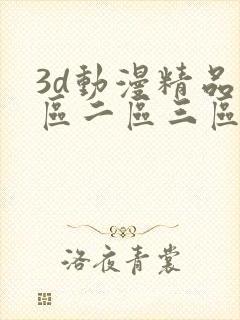 3d動漫精品
區二區三區
洛夜青裳